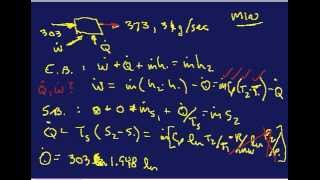 303 → 373, 3 kg/sec
Ẇ Q̇
E.B.: Ẇ + Q̇ + ṁh₁ = ṁh₂
Q̇, W? Ẇ = ṁ(h₂-h₁) - Q̇ = ṁCp(T₂-T₁) - Q̇
S.B.: 0 + 0 + ṁS₁ + Q̇/Ts = ṁS₂
Q̇ = Ts(S₂-S₁) = ṁ[Cp ln T₂/T₁ - R/mw ln P₂/P₁]
Q̇ = 303 1.948 ln